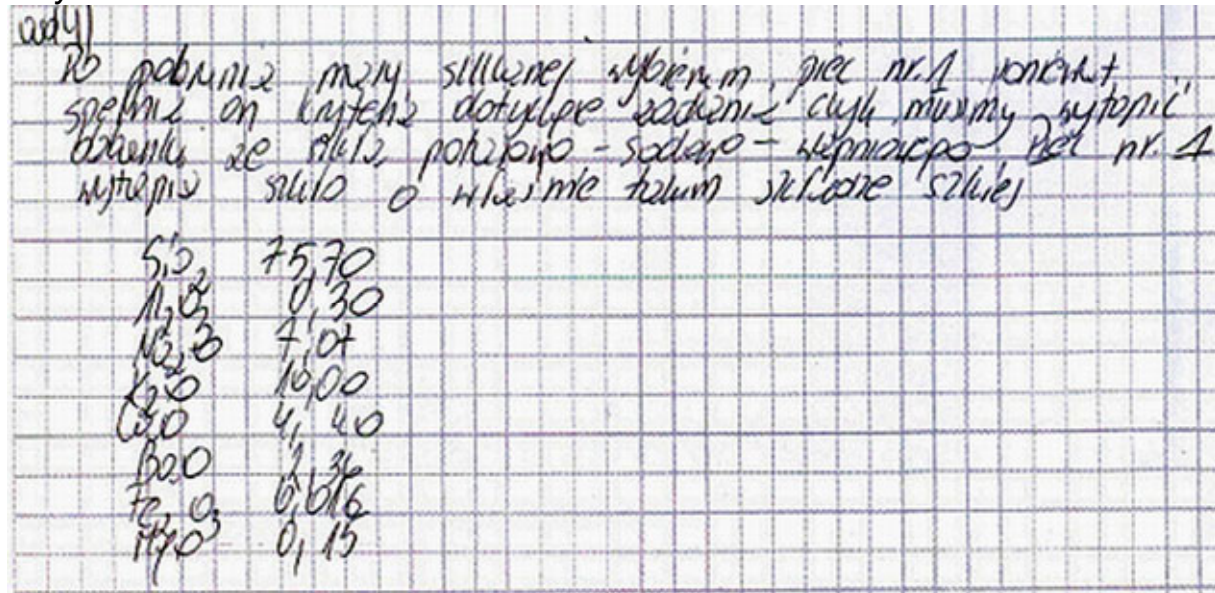 Do pobrania masy szklanej wybieram piec nr. 1 ponieważ
spełnia on kryteria dotyczące zadania czyli musimy wytopić
ze szkła potasowo - sodowo - wapniowego. Piec nr. 1
wytapia szkło o właśnie takim składzie szkiej
SiO2 75,70
Al2O3 0,30
Na2O 7,07
K2O 10,00
CaO 4,40
BaO 2,36
Fe2O3 0,016
MgO 0,15